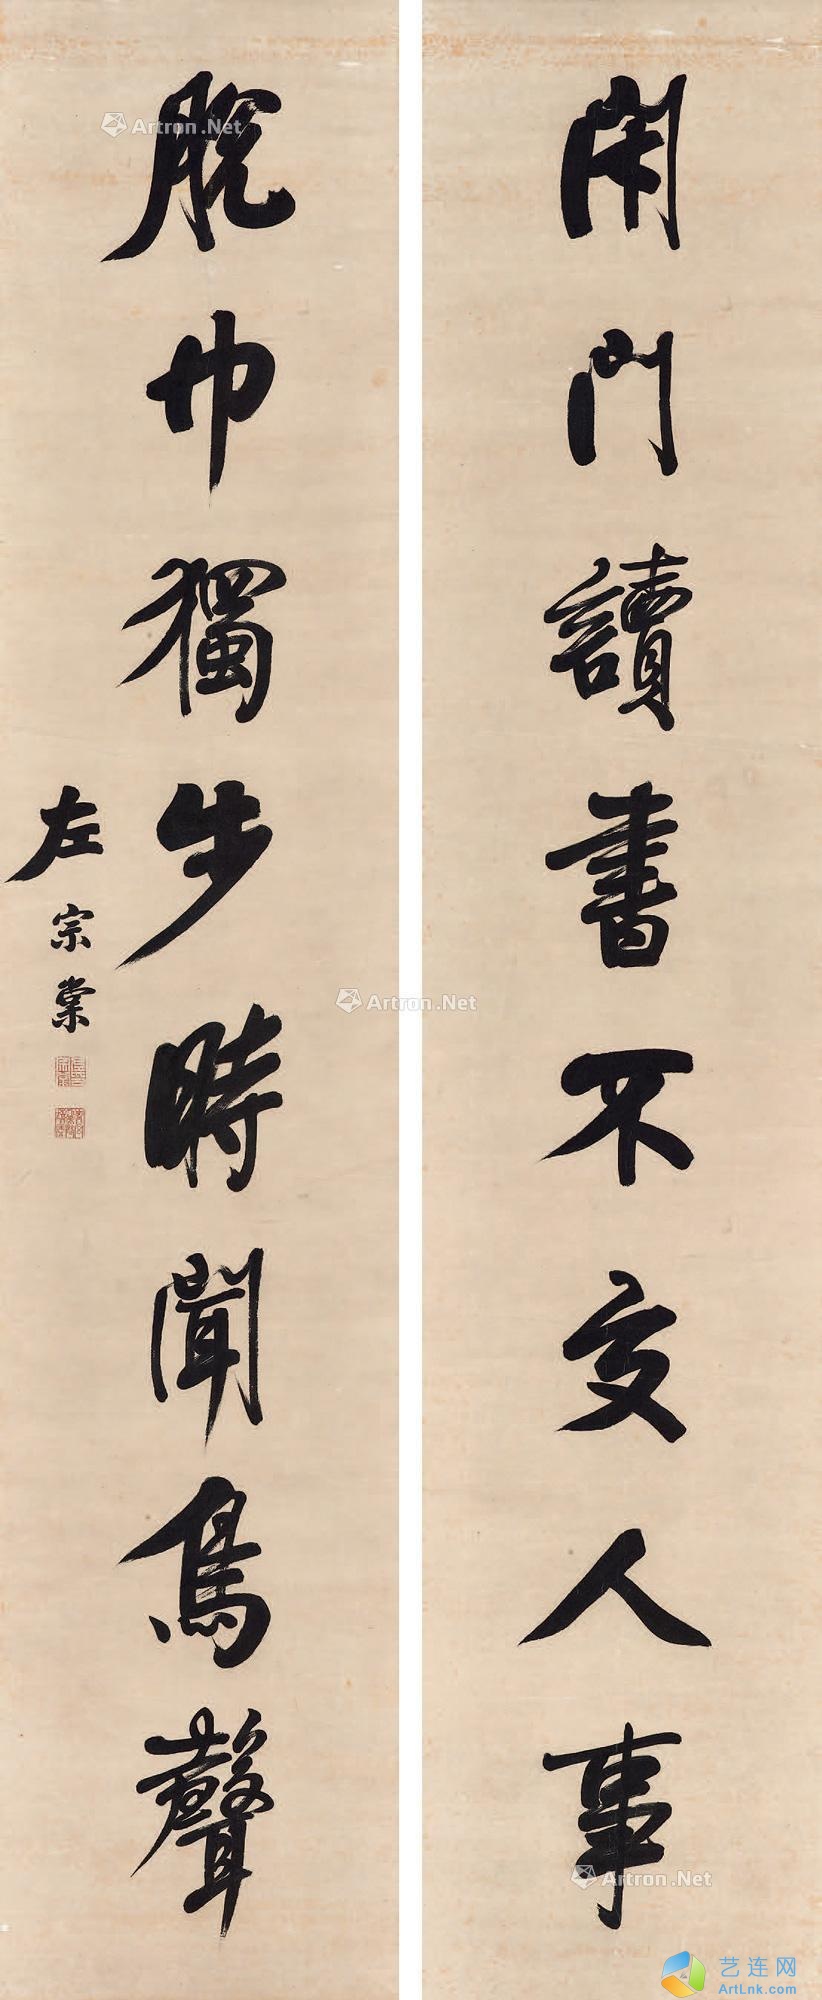 閉門讀書不交人事
脫巾獨步時聞鳥聲
左宗棠
Artron.Net
Artron.Net
Artron.Net
艺连网
ArtLnk.com